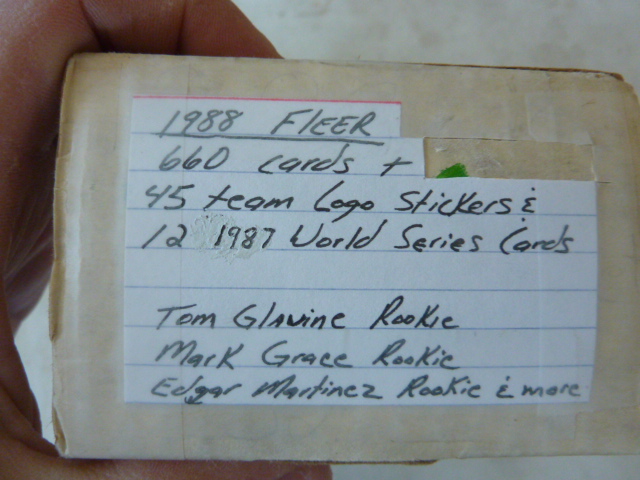 1988 FlEER
660 cards +
45 team Logo Stickers &
12 1987 World Series Cards
Tom Glavine Rookie
Mark Grace Rookie
Edgar Martinez Rookie & more